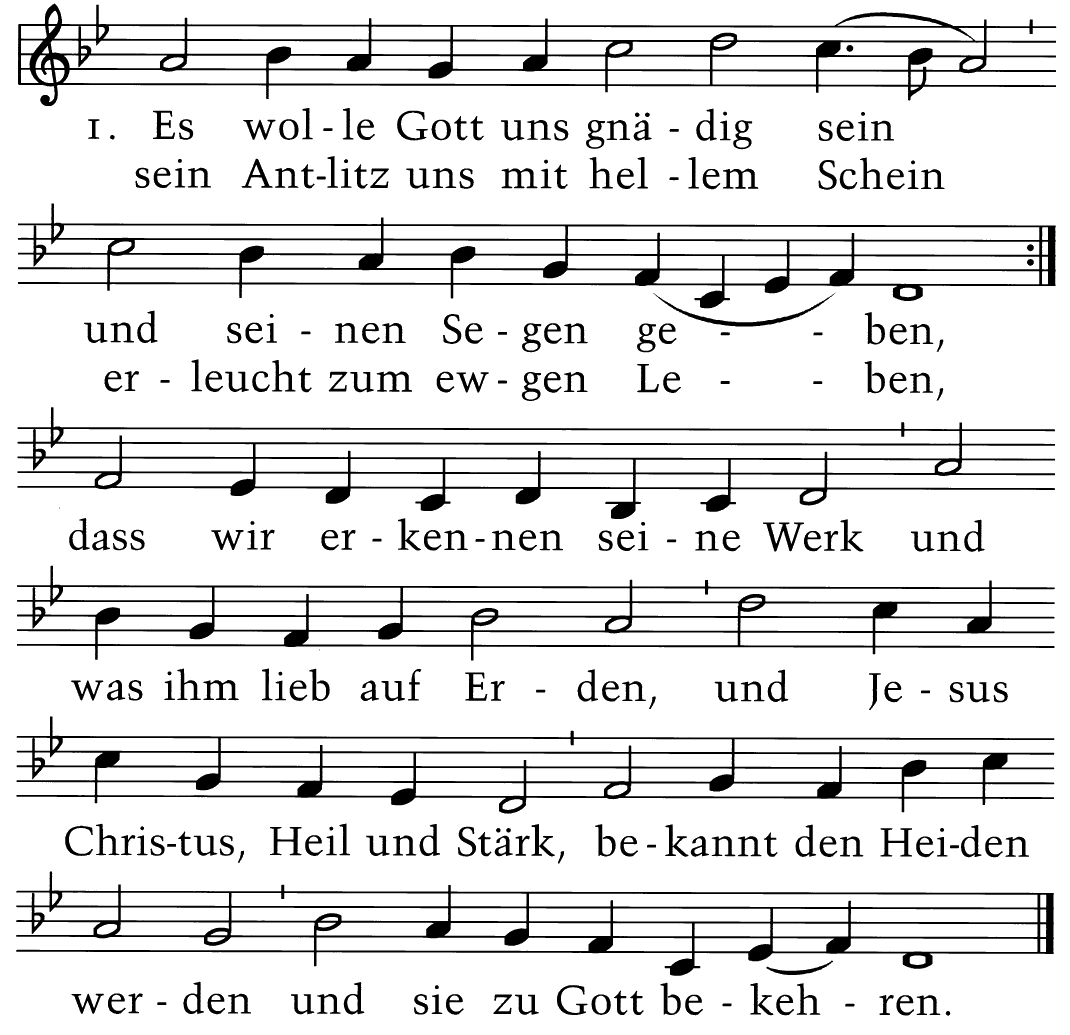 1. Es wol - le Gott uns gnä - dig sein
sein Ant-litz uns mit hel - lem Schein
und sei - nen Se - gen ge - - ben,
er - leucht zum ew - gen Le - - ben,
dass wir er - ken - nen sei - ne Werk und
was ihm lieb auf Er - den, und Je - sus
Chris-tus, Heil und Stärk, be - kannt den Hei-den
wer - den und sie zu Gott be - keh - ren.